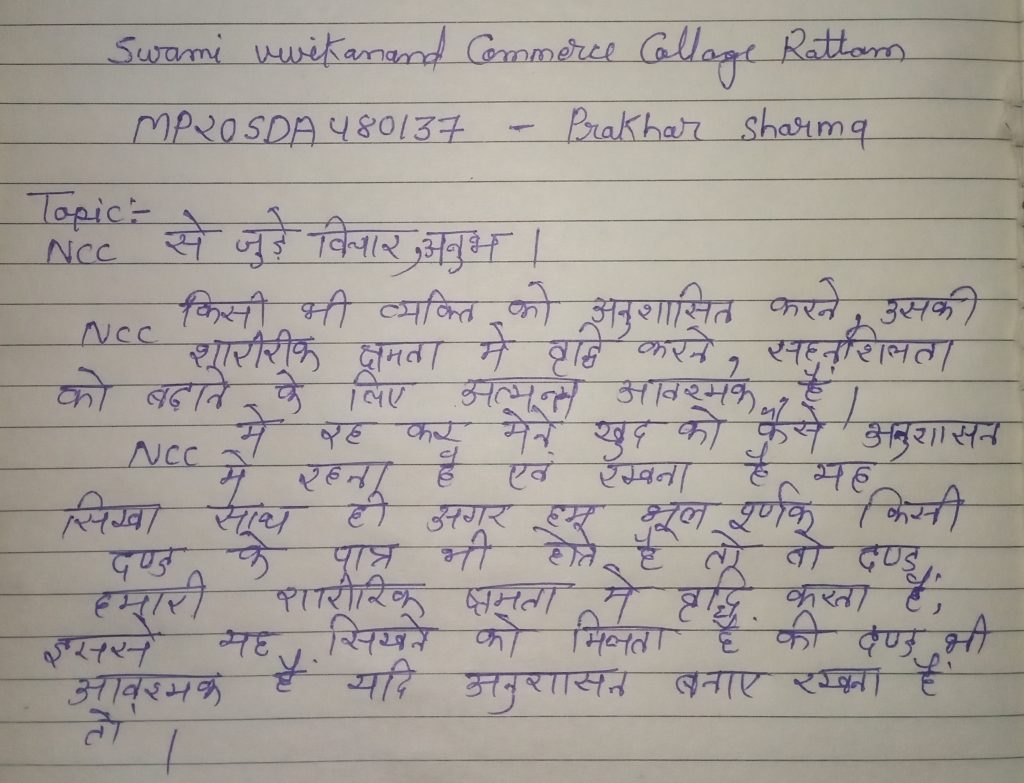 Swami vivekanand Commerce Collage Ratlam
MP20SDA480137 - Prakhar sharma
Topic:-
NCC से जुड़े विचार, अनुभ |
NCC किसी भी व्यक्ति को अनुशासित करने, उसकी
शारीरीक क्षमता मे वृद्धि करने, सहनशिलता
को बढ़ाने के लिए अत्यन्त आवश्यक है |
NCC मे रह कर मेने खुद को कैसे अनुशासन
मे रहना है एवं रखना है यह
सिखा साथ ही अगर हम भूल किसी
दण्ड के पात्र भी होते है तो वो दण्ड
हमारी शारीरिक क्षमता मे वृद्धि करता है,
इससे यह सिखने को मिलता है की दण्ड भी
आवश्यक है यदि अनुशासन बनाए रखना है
तो |